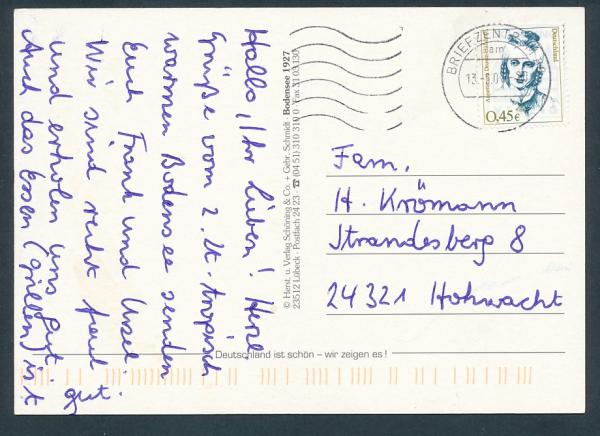 Hallo, Ihr Lieben! Herzl.
Grüße vom z. Zt. tropisch
warmen Bodensee senden
Euch Frank und Ursel.
Wir sind recht faul
und erholen uns gut.
Auch das Essen (grillen) ist
gut.
© Herst. u. Verlag Schöning & Co. + Gebr. Schmidt · Bodensee 1927
23512 Lübeck · Postfach 24 23 · ☎ (04 51) 310 310 0 · Fax 3103130
BRIEFZENTR
Deutschland
0,45€
Fam.
H. Krömann
Strandesberg 8
24321 Hohwacht
Deutschland ist schön – wir zeigen es!